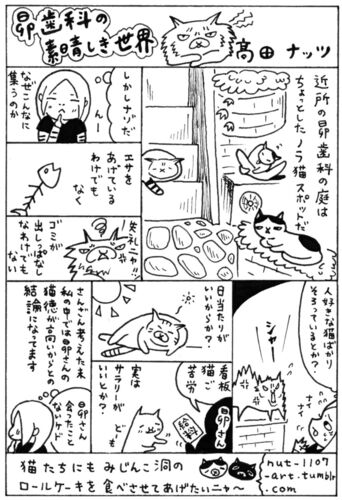 昴歯科の
素晴しき世界
高田 ナッツ
近所の昴歯科の庭は
ちょっとした ノラ猫 スポットだ
しかしナゾだ
んー
なぜこんなに
集うのか
エサを
あげている
わけでも
なく
失礼ニャ!!
ゴミが
出しっぱなし
なわけでも
ない
人好きな猫ばかり
そろっているとか?
シャー
日当たりが
いいからか?
看板
猫ご
苦労
昴さん
給料
実は
サラリーが
いいとか?
どーも
さんざん考えた末
私の中では昴さんの
猫徳が高いからとの
結論になってます
昴さん
会ったこと
ないケド
猫たちにも みじんこ洞の
ロールケーキを食べさせてあげたいニャ〜
nut-1107
-art.tumblr
.com